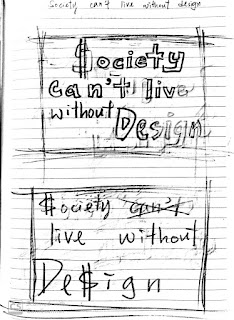 Society can't live without design
$ociety
can't live
without Design
$ociety can't
live without
De$ign